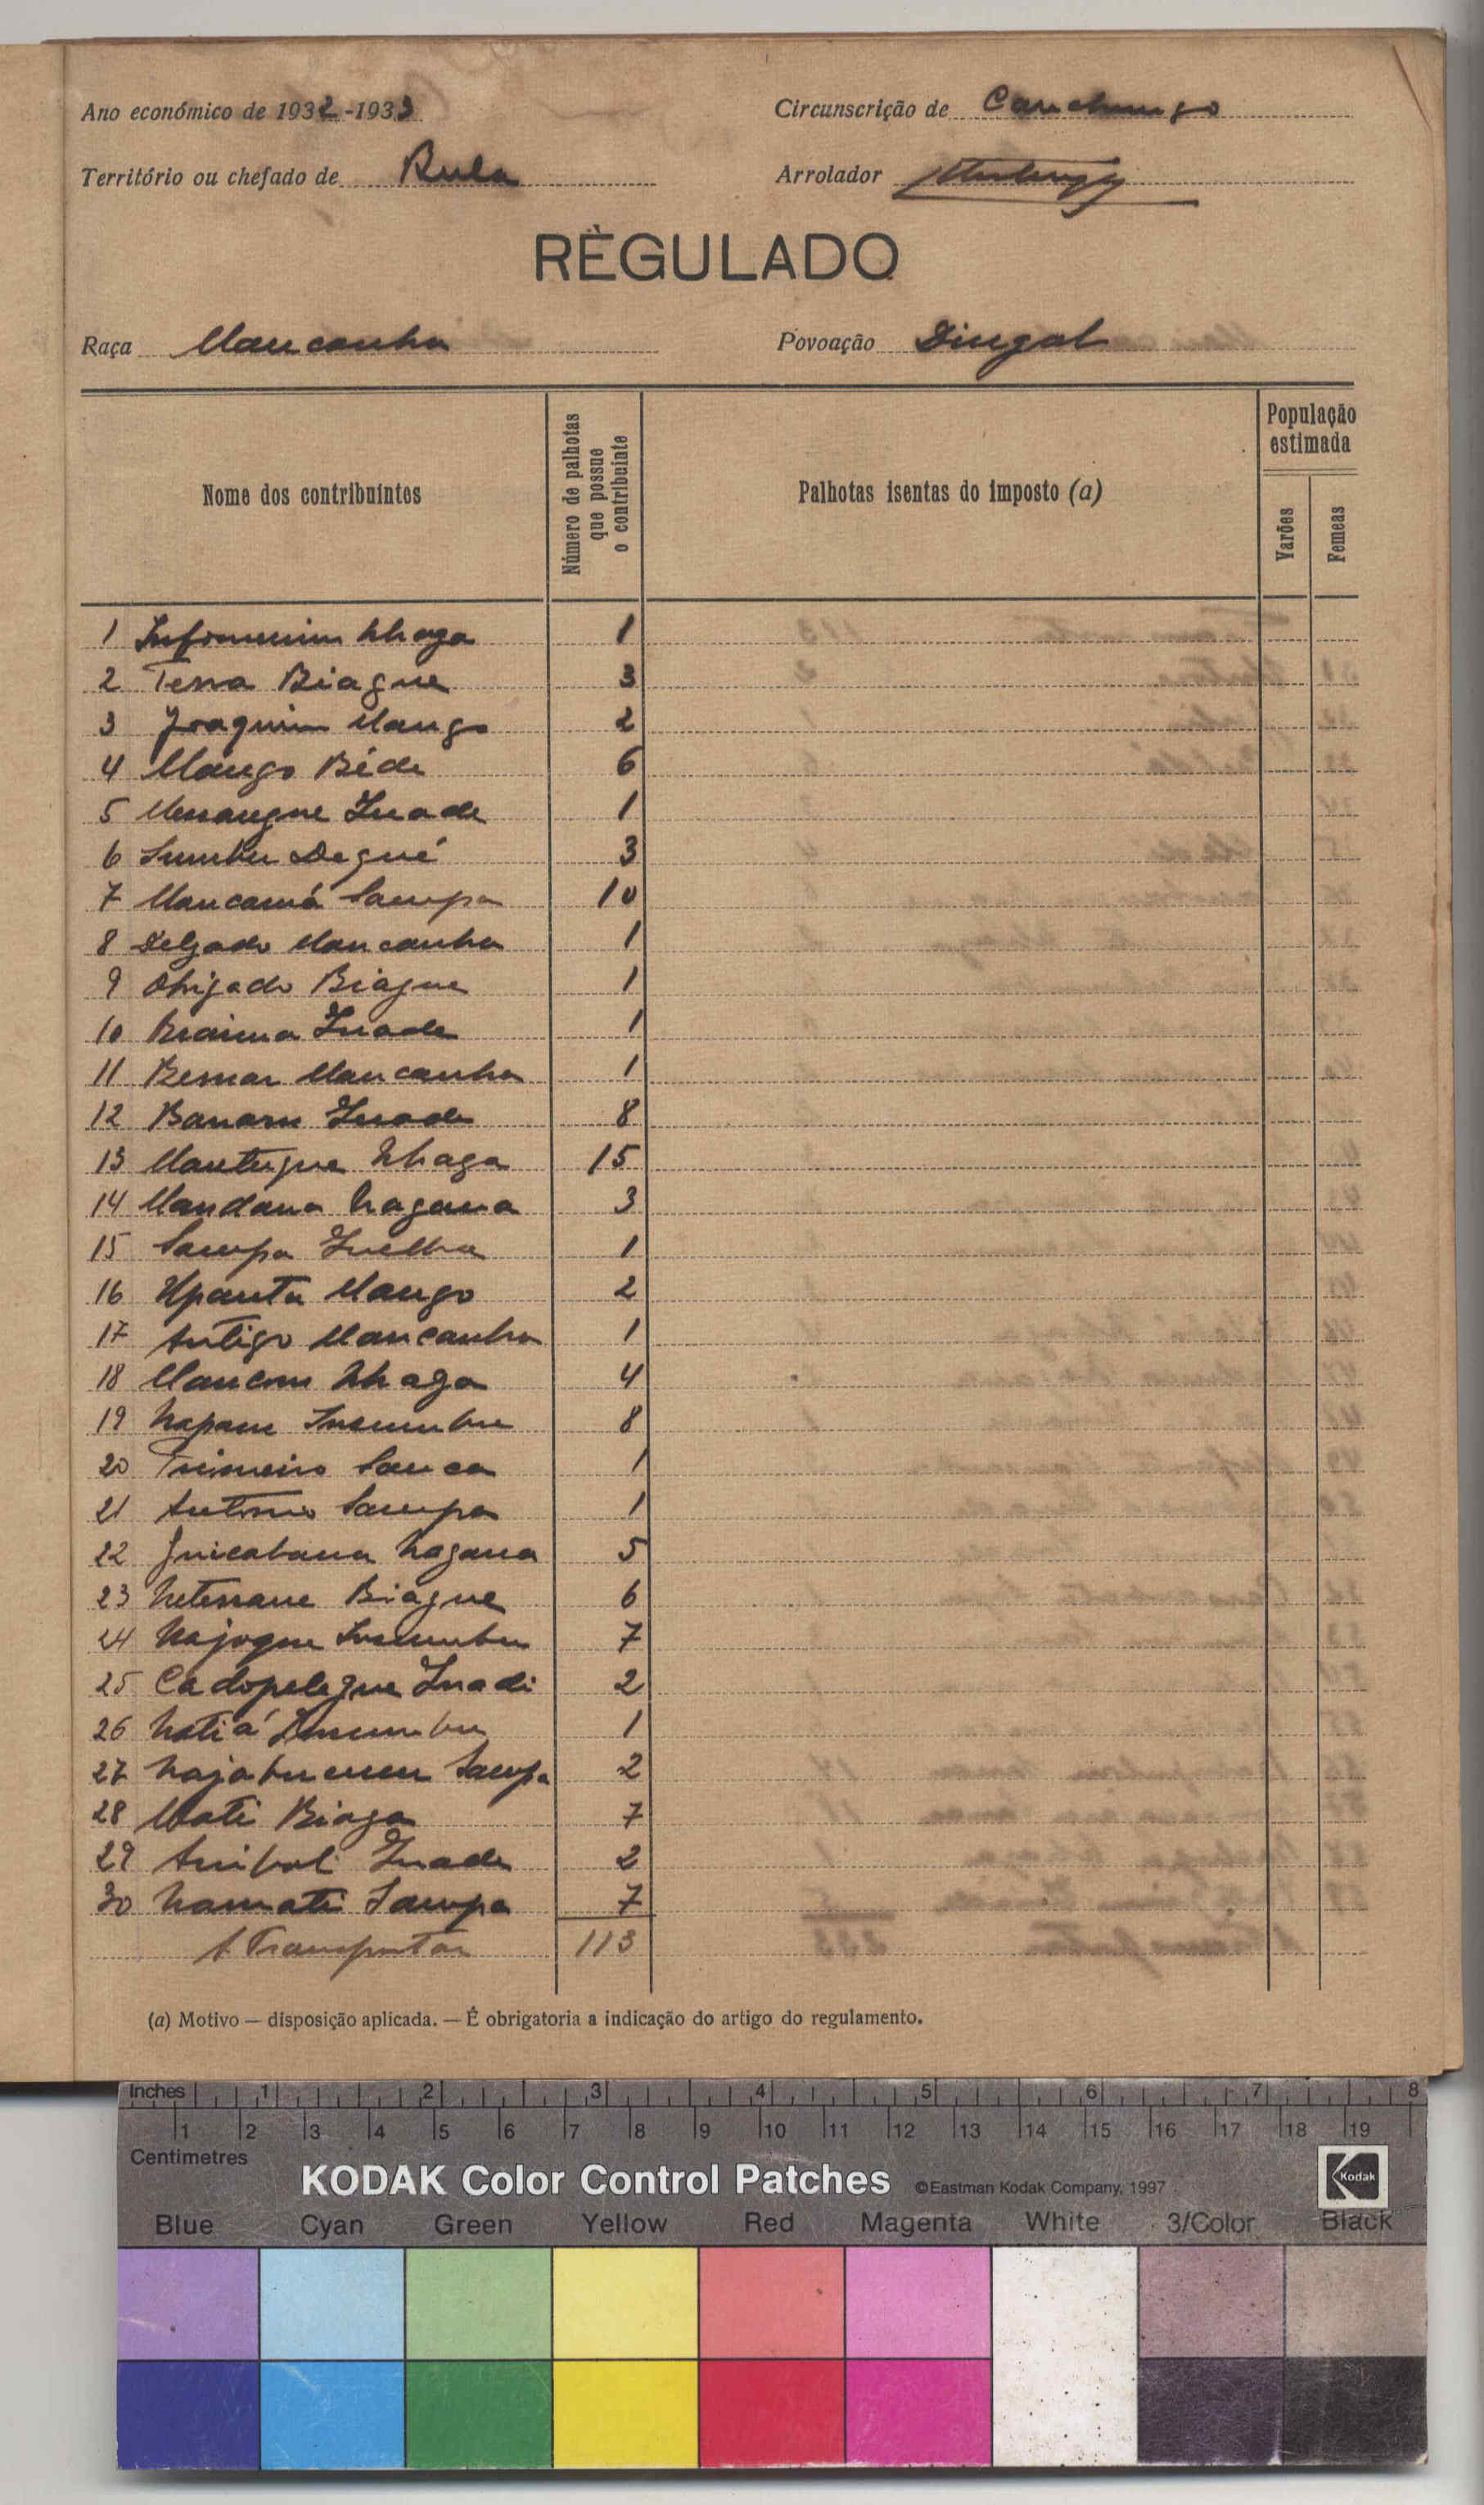 Ano económico de 1932-1933
Circunscrição de Canchungo
Território ou chefado de Bula
Arrolador
RÈGULADO
Raça Mancanha
Povoação Dingal
Nome dos contribuintes
Número de palhotas que possue o contribuinte
Palhotas isentas do imposto (a)
População estimada
Varões
Femeas
1 Nhaga 1
2 Biague 3
3 Joaquim Mango 2
4 Mango Béde 6
5 Inade 1
6 Degué 3
7 Sampa 10
8 Delgado Mancanha 1
9 Obrigado Biague 1
10 Braima Inade 1
11 Mancanha 1
12 Inade 8
13 Nhaga 15
14 Mandana Nagana 3
15 Sampa 1
16 Upanta Mango 2
17 Antigo Mancanha 1
18 Nhaga 4
19 Insumbu 8
20 1
21 Antonio Sampa 1
22 Nagana 5
23 Biague 6
24 Najogue Insumbu 7
25 Cadopelegue Inadi 2
26 Natiá Insumbu 1
27 Sampa 2
28 Biaga 7
29 Anibal Inade 2
30 Namati Sampa 7
A Transportar 113
(a) Motivo — disposição aplicada. — É obrigatoria a indicação do artigo do regulamento.
Inches 1 2 3 4 5 6 7 8
1 2 3 4 5 6 7 8 9 10 11 12 13 14 15 16 17 18 19
Centimetres
KODAK Color Control Patches ©Eastman Kodak Company, 1997
Kodak
Blue Cyan Green Yellow Red Magenta White 3/Color Black